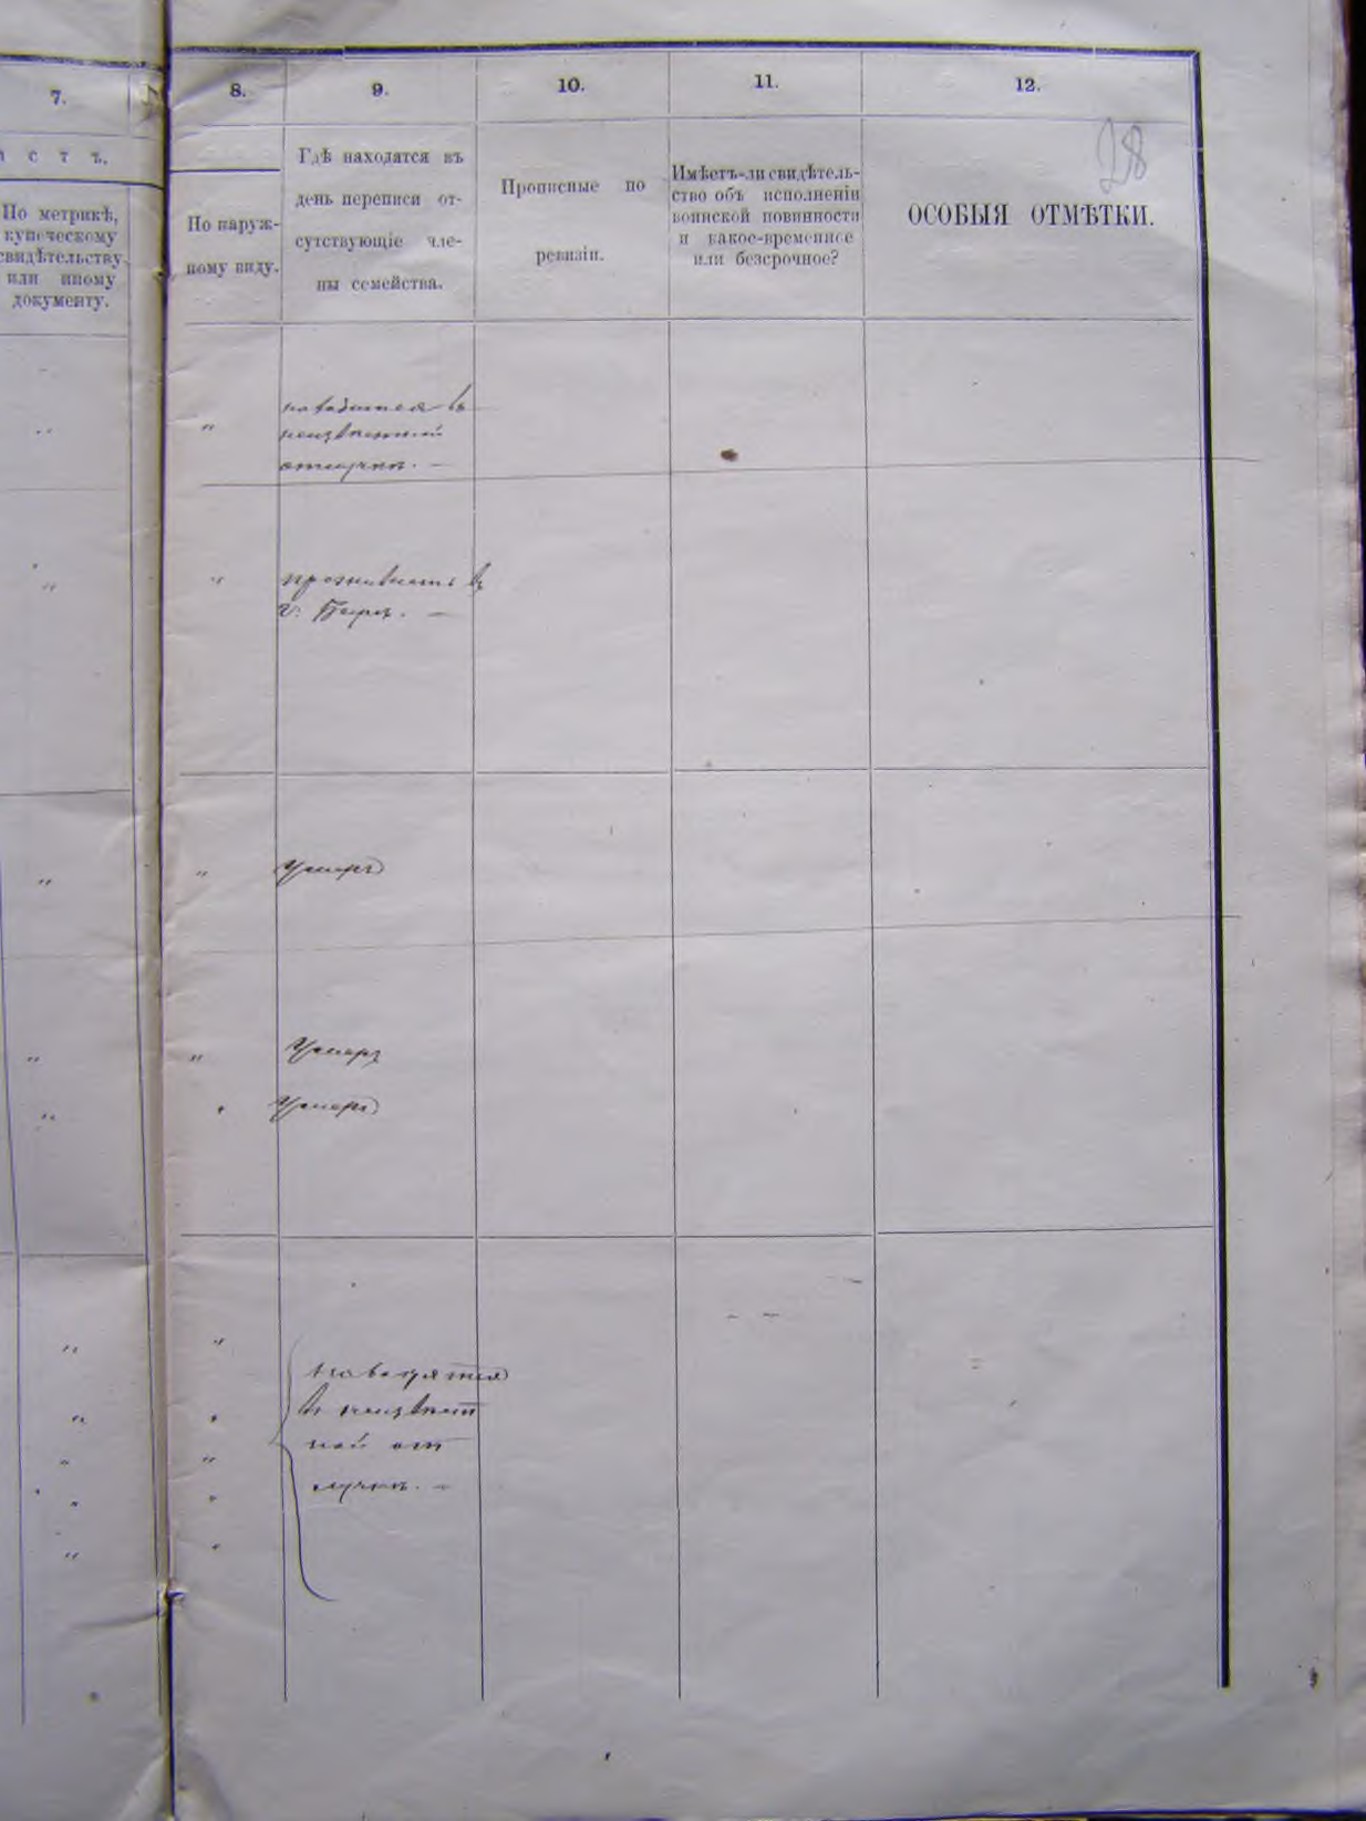 7.
8.
9.
10.
11.
12.
28
с т ъ.
По метрикѣ,
купеческому
свидѣтельству
или иному
документу.
По наруж-
ному виду.
Гдѣ находятся въ
день переписи от-
сутствующіе чле-
ны семейства.
Прописные по
ревизіи.
Имѣетъ-ли свидѣтель-
ство объ исполненіи
воинской повинности
и какое-временное
или безсрочное?
ОСОБЫЯ ОТМѢТКИ.
находится въ
неизвѣстной
отлучкѣ. —
"
"
проживаетъ въ
г.
"
"
Умеръ
"
"
Умеръ
"
"
Умеръ
"
"
находятся
въ неизвѣст
ной от
лучкѣ. —